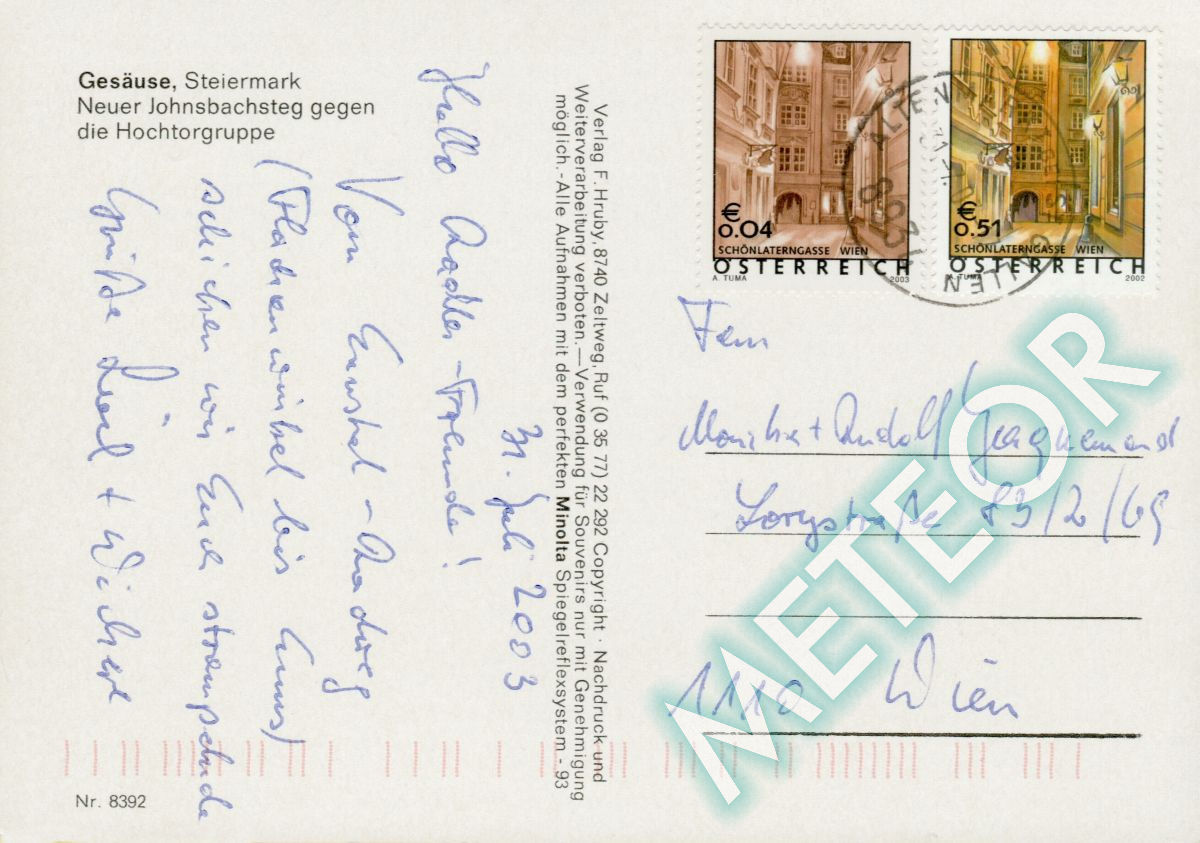 Gesäuse, Steiermark
Neuer Johnsbachsteg gegen
die Hochtorgruppe
31. Juli 2003
Hallo Radler-Freunde!
Vom Ennstal-Radweg
(Flachenwinkel bis Enns)
schicken wir Euch strampelnde
Grüße
Verlag F. Hruby, 8740 Zeltweg, Ruf (0 35 77) 22 292 Copyright · Nachdruck und
Weiterverarbeitung verboten.—Verwendung für Souvenirs nur mit Genehmigung
möglich.-Alle Aufnahmen mit dem perfekten Minolta Spiegelreflexsystem - 93
€
0.04
SCHÖNLATERNGASSE WIEN
ÖSTERREICH
A. TUMA 2003
€
0.51
SCHÖNLATERNGASSE WIEN
ÖSTERREICH
A. TUMA 2002
Fam
Monika + Rudolf Jacquemond
Lorystraße 83/2/69
1110 Wien
METEOR
Nr. 8392